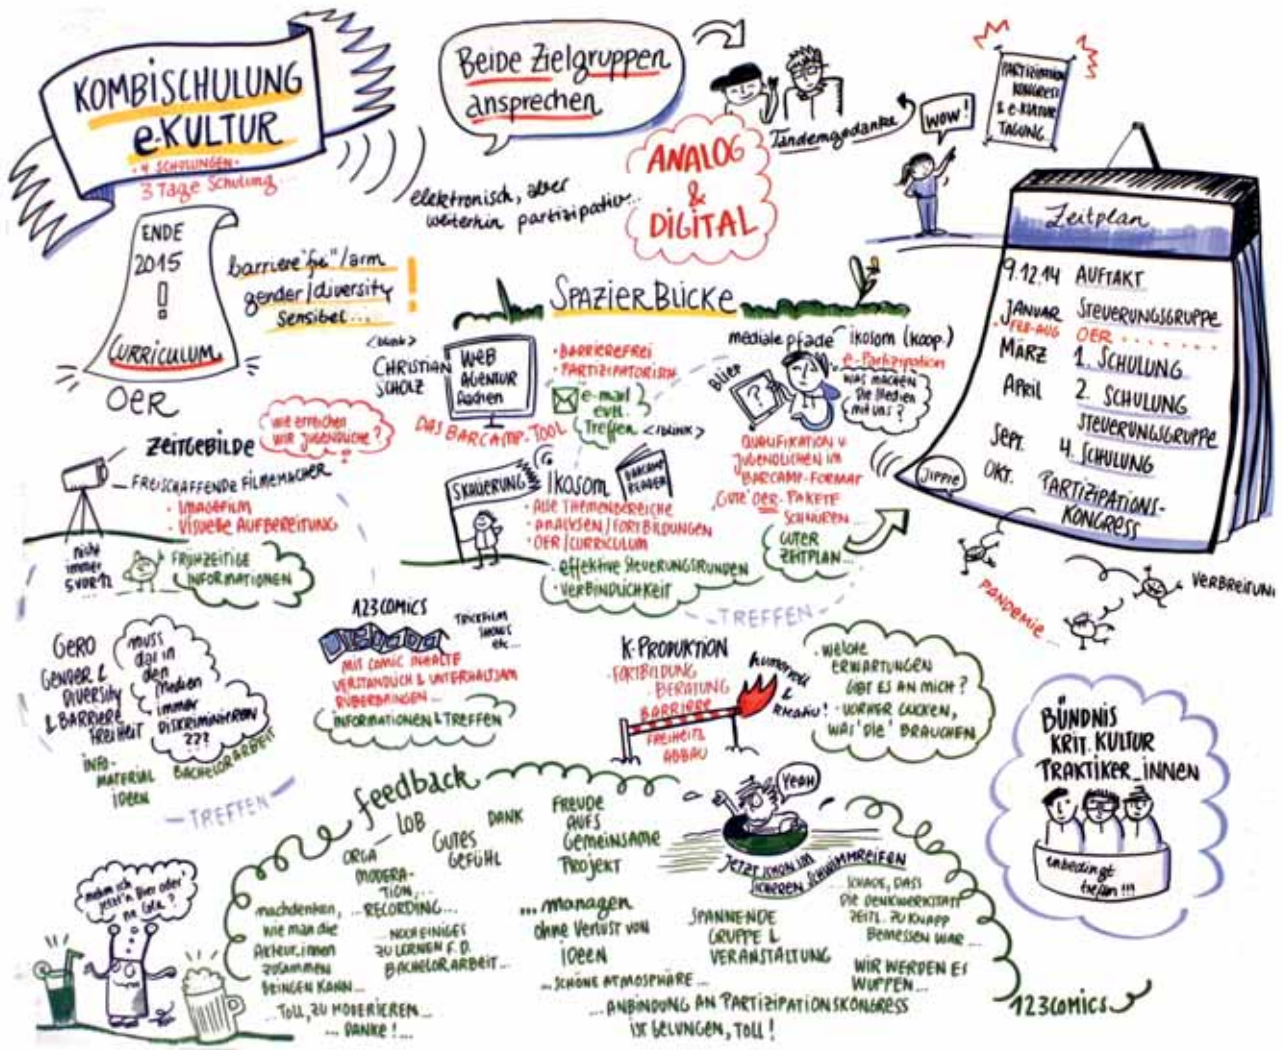 KOMBISCHULUNG
e-KULTUR
• 4 SCHULUNGEN •
3 Tage Schulung...
Beide Zielgruppen
ansprechen
elektronisch, aber
weiterhin partizipativ...
ANALOG
&
DIGITAL
Tandemgedanke
WOW!
PARTIZIPATION
KONGRESS
& e-KULTUR
TAGUNG
Zeitplan
9.12.14 AUFTAKT
JANUAR STEUERUNGSGRUPPE
FEB-AUG OER
MÄRZ 1. SCHULUNG
APRIL 2. SCHULUNG
STEUERUNGSGRUPPE
SEPT. 4. SCHULUNG
OKT. PARTIZIPATIONS-
KONGRESS
Jippie
PANDEMIE...
VERBREITUN
ENDE
2015
!
CURRICULUM
OER
barriere"frei"/arm
gender/diversity
Sensibel...
!
SPAZIERBLICKE
<blink>
CHRISTIAN
SCHOLZ
WEB
AGENTUR
Aachen
• BARRIEREFREI
• PARTIZIPATORISCH
e-mail
evtl.
Treffen
</blink>
DAS BARCAMP-TOOL
mediale pfade
ikosom (koop.)
e-Partizipation
BLIEP
?
WAS MACHEN
DIE MEDIEN
MIT UNS?
QUALIFIKATION V.
JUGENDLICHEN IM
BARCAMP-FORMAT
'GUTE' OER-PAKETE
SCHNÜREN...
GUTER
ZEITPLAN...
ZEITGEBILDE
wie erreichen
wir jugendliche?
FREISCHAFFENDE FILMEMACHER
• IMAGEFILM
• VISUELLE AUFBEREITUNG
nicht
immer
FRÜHZEITIGE
INFORMATIONEN
Ikosom
BARCAMP
READER
• ALLE THEMENBEREICHE
• ANALYSEN/FORTBILDUNGEN
• OER/CURRICULUM
• effektive Steuerungsrunden
• VERBINDLICHKEIT
TREFFEN
GERO
GENDER &
DIVERSITY
& BARRIERE
FREIHEIT
muss
das in
den
Medien
immer
DISKRIMINIEREN
???
INFO-
MATERIAL
IDEEN
BACHELORARBEIT
TREFFEN
123COMICS
TRICKFILM
SHOWS
etc...
MIT COMIC INHALTE
VERSTÄNDLICH & UNTERHALTSAM
RÜBERBRINGEN...
INFORMATIONEN & TREFFEN
K-PRODUKTION
• FORTBILDUNG
BERATUNG
BARRIERE
FREIHEIT
ABBAU
humorvoll
&
kreativ!
• WELCHE
ERWARTUNGEN
GIBT ES AN MICH?
• VORHER GUCKEN,
WAS 'DIE' BRAUCHEN
BÜNDNIS
KRIT. KULTUR
PRAKTIKER_INNEN
unbedingt
treffen!!!
feedback
LOB
DANK
ORGA
MODERA-
TION,...
RECORDING...
GUTES
GEFÜHL
FREUDE
AUFS
GEMEINSAME
PROJEKT
YEAH
JETZT SCHON IM
SICHEREN SCHWIMMREIFEN
nehm ich
jetzt'n Bier oder
ne Cola?
nachdenken,
wie man die
Akteur_innen
zusammen
BRINGEN KANN...
...NOCH EINIGES
ZU LERNEN F. D.
BACHELORARBEIT...
...managen
ohne Verlust von
IDEEN
SPANNENDE
GRUPPE &
VERANSTALTUNG
...SCHADE, DASS
DIE DENKWERKSTATT
ZEITL. ZU KNAPP
BEMESSEN WAR...
WIR WERDEN ES
WUPPEN...
...SCHÖNE ATMOSPHÄRE...
...TOLL, ZU MODERIEREN...
... DANKE!...
...ANBINDUNG AN PARTIZIPATIONSKONGRESS
IST GELUNGEN, TOLL!
123COMICS